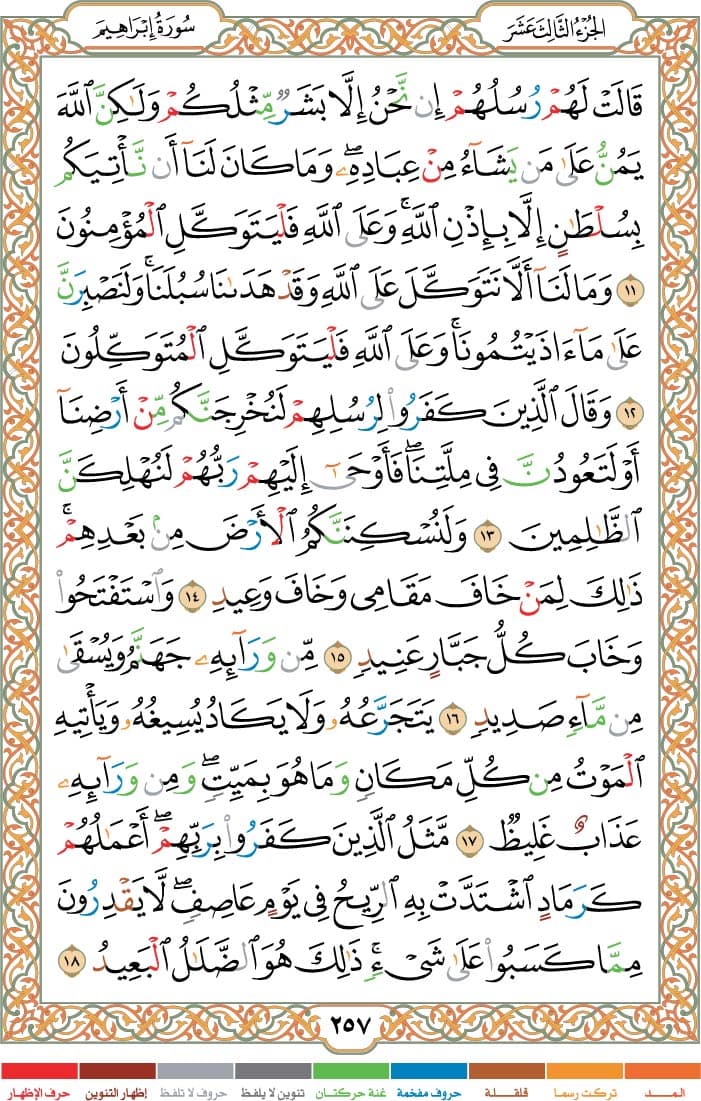 الجُزْءُ الثَّالِثَ عَشَرَ
سُورَةُ إِبْرَاهِيمَ
قَالَتْ لَهُمْ رُسُلُهُمْ إِن نَّحْنُ إِلَّا بَشَرٌ مِّثْلُكُمْ وَلَٰكِنَّ ٱللَّهَ
يَمُنُّ عَلَىٰ مَن يَشَآءُ مِنْ عِبَادِهِۦ ۖ وَمَا كَانَ لَنَآ أَن نَّأْتِيَكُم
بِسُلْطَٰنٍ إِلَّا بِإِذْنِ ٱللَّهِ ۚ وَعَلَى ٱللَّهِ فَلْيَتَوَكَّلِ ٱلْمُؤْمِنُونَ
١١ وَمَا لَنَآ أَلَّا نَتَوَكَّلَ عَلَى ٱللَّهِ وَقَدْ هَدَىٰنَا سُبُلَنَا ۚ وَلَنَصْبِرَنَّ
عَلَىٰ مَآ ءَاذَيْتُمُونَا ۚ وَعَلَى ٱللَّهِ فَلْيَتَوَكَّلِ ٱلْمُتَوَكِّلُونَ
١٢ وَقَالَ ٱلَّذِينَ كَفَرُوا۟ لِرُسُلِهِمْ لَنُخْرِجَنَّكُم مِّنْ أَرْضِنَآ
أَوْ لَتَعُودُنَّ فِى مِلَّتِنَا ۖ فَأَوْحَىٰٓ إِلَيْهِمْ رَبُّهُمْ لَنُهْلِكَنَّ
ٱلظَّٰلِمِينَ ١٣ وَلَنُسْكِنَنَّكُمُ ٱلْأَرْضَ مِنۢ بَعْدِهِمْ ۚ
ذَٰلِكَ لِمَنْ خَافَ مَقَامِى وَخَافَ وَعِيدِ ١٤ وَٱسْتَفْتَحُوا۟
وَخَابَ كُلُّ جَبَّارٍ عَنِيدٍ ١٥ مِّن وَرَآئِهِۦ جَهَنَّمُ وَيُسْقَىٰ
مِن مَّآءٍ صَدِيدٍ ١٦ يَتَجَرَّعُهُۥ وَلَا يَكَادُ يُسِيغُهُۥ وَيَأْتِيهِ
ٱلْمَوْتُ مِن كُلِّ مَكَانٍ وَمَا هُوَ بِمَيِّتٍ ۖ وَمِن وَرَآئِهِۦ
عَذَابٌ غَلِيظٌ ١٧ مَّثَلُ ٱلَّذِينَ كَفَرُوا۟ بِرَبِّهِمْ ۖ أَعْمَٰلُهُمْ
كَرَمَادٍ ٱشْتَدَّتْ بِهِ ٱلرِّيحُ فِى يَوْمٍ عَاصِفٍ ۖ لَّا يَقْدِرُونَ
مِمَّا كَسَبُوا۟ عَلَىٰ شَىْءٍ ۚ ذَٰلِكَ هُوَ ٱلضَّلَٰلُ ٱلْبَعِيدُ ١٨
٢٥٧
المــد تركت رسما قلقلة حروف مفخمة غنة حركتان تنوين لا يلفظ حروف لا تلفظ إظهار التنوين حرف الإظهار